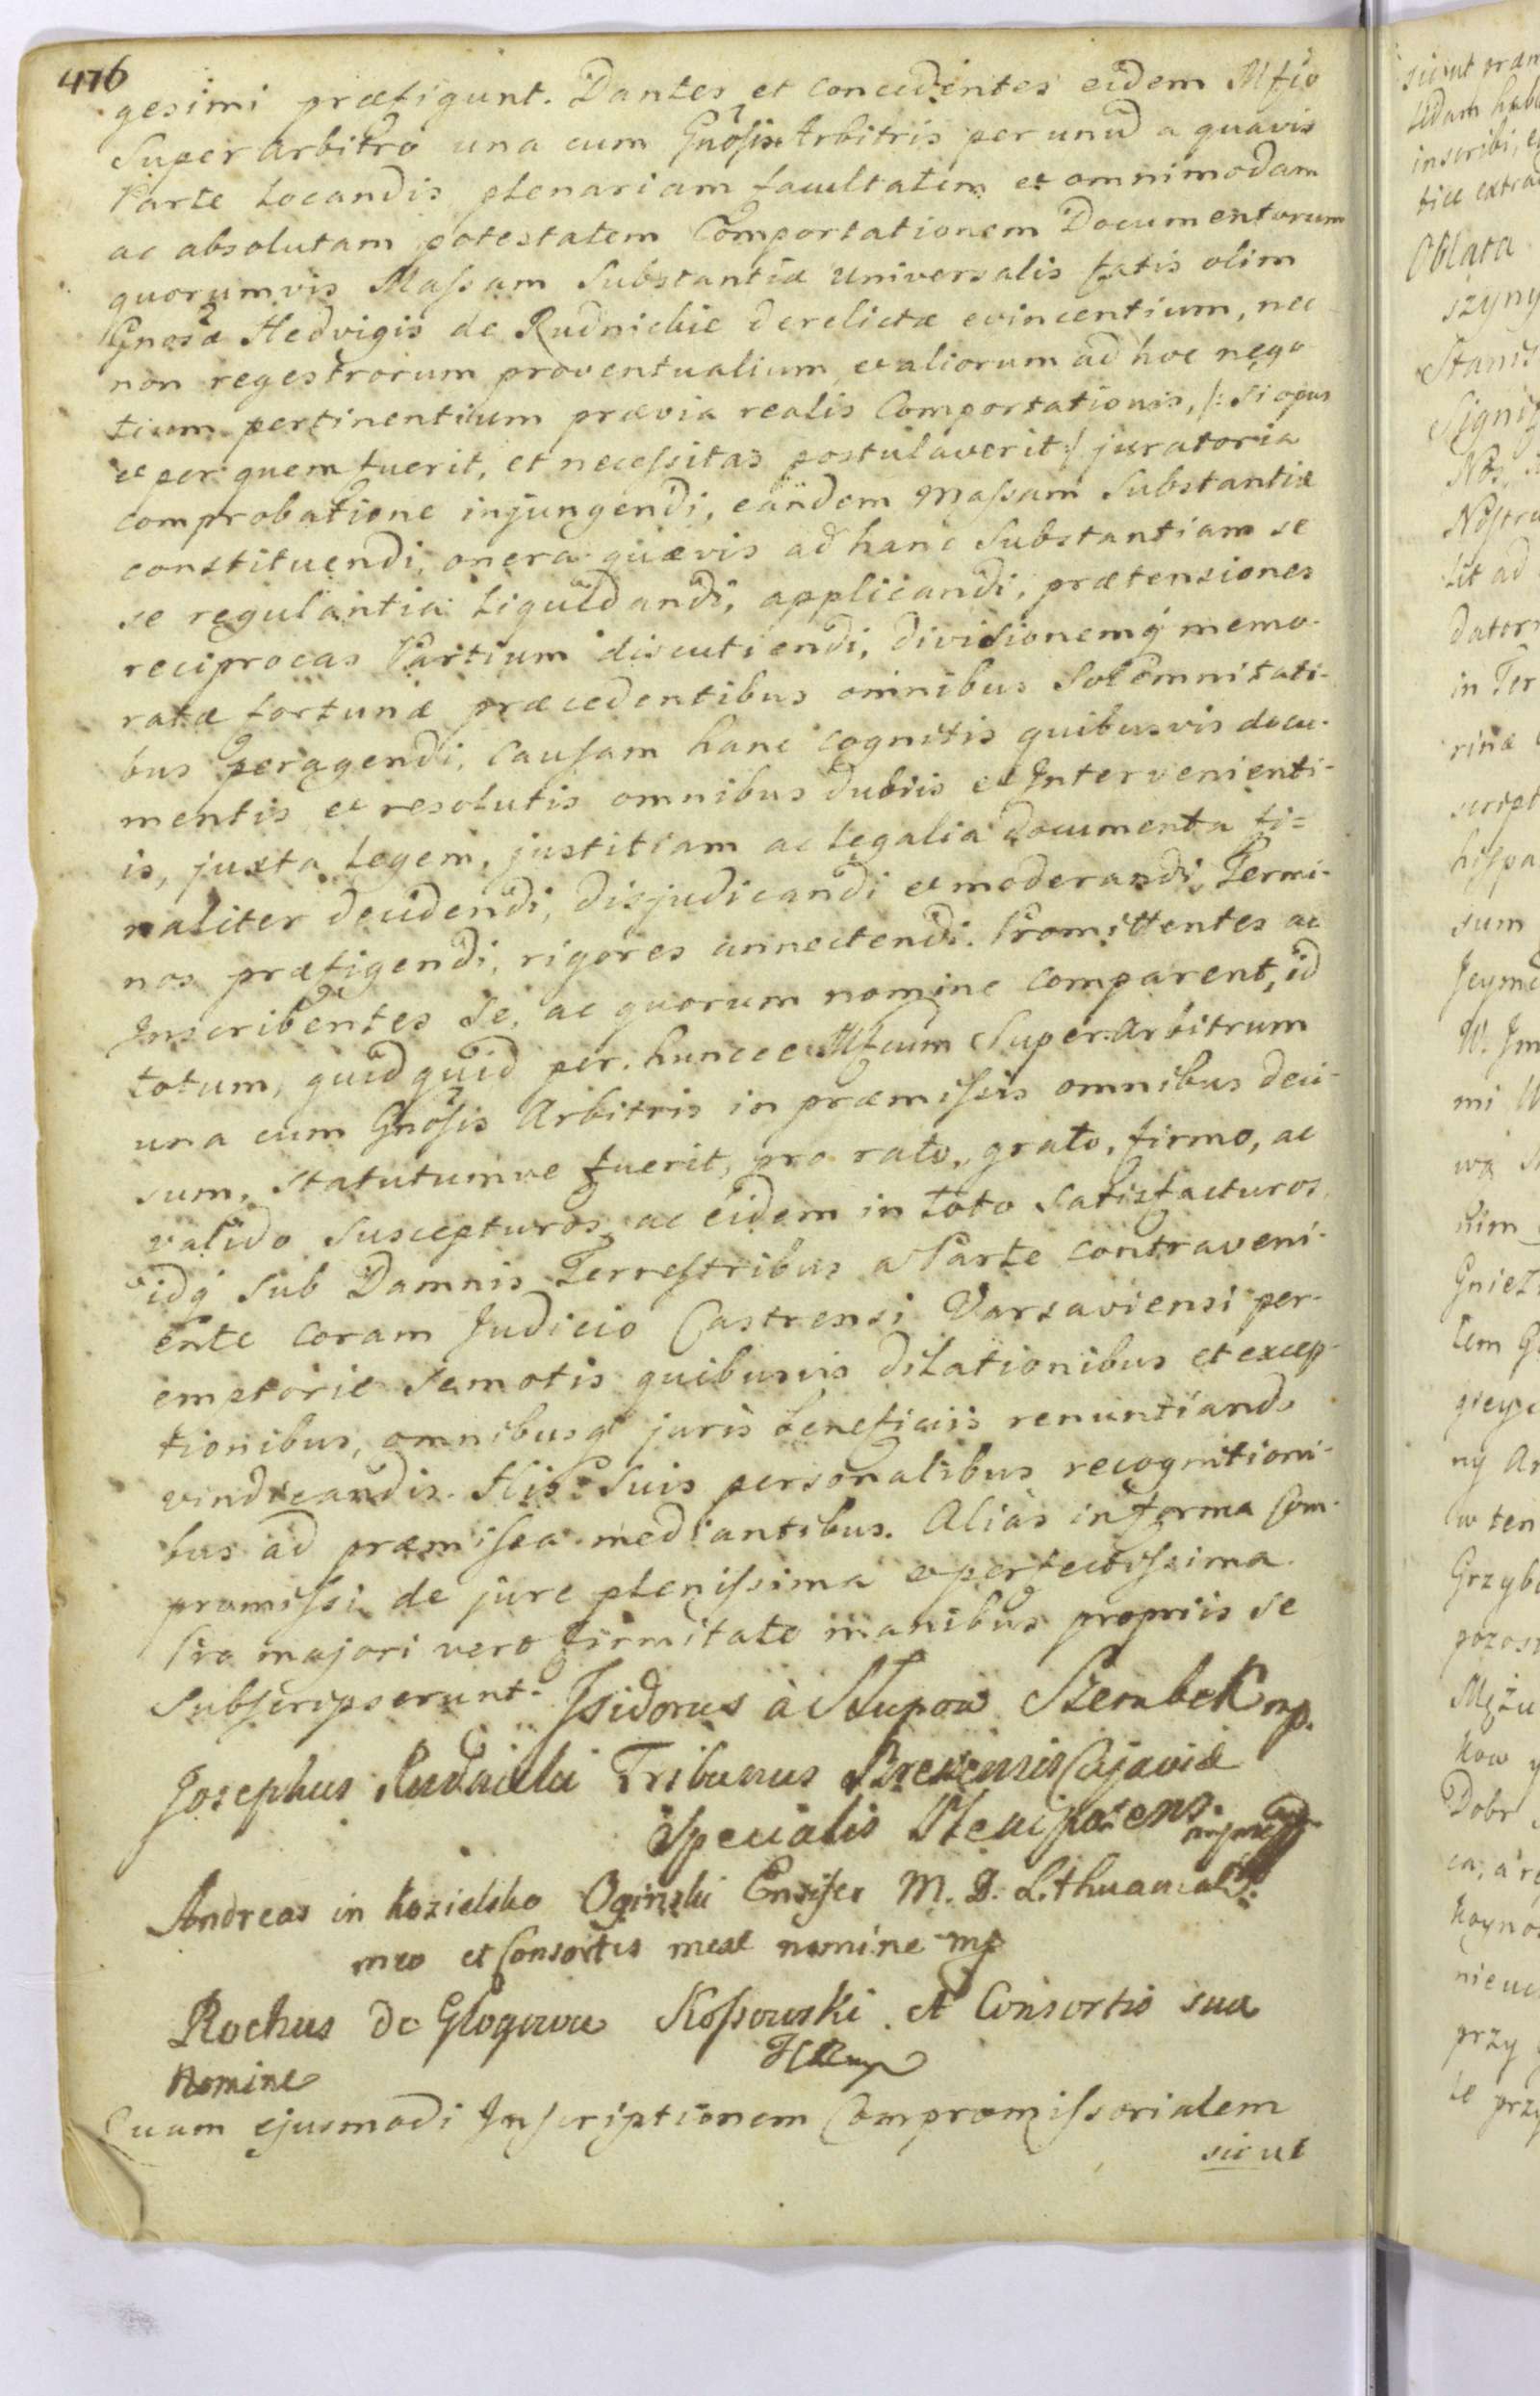 476
gesimi præfigunt. Dantes et concedentes eidem Mfio
Superarbitro una cum Gnosis Arbitris per unũ a quavis
Parte locandis plenariam facultatem et omnimodam
ac absolutam potestatem Comportationem Documentorum
quorumvis Massam Substantiæ universalis fatis olim
Gnosa Hedvigis de Rudnickie derelictæ evincentium, nec
non regestrorum proventualium et aliorum ad hoc nego
tium pertinentium prævia realis Comportationis, /: si opus
et per quem fuerit, et necessitas postulaverit :/ juratoria
comprobatione injungendi, eandem Massam Substantiæ
constituendi, onera quævis ad hanc Substantiam se
se regulantia liquidandi, applicandi, prætensiones
reciprocas Partium discutiendi, divisionemq́ memo-
ratæ fortunæ præcedentibus omnibus Solemnitati-
bus peragendi, Causam hanc cognitis quibusvis docu-
mentis et resolutis omnibus dubiis et Intervenienti-
is, juxta legem, justitiam ac legalia documenta fi=
naliter decidendi, disjudicandi et moderandi, Termi-
nos præfigendi, rigores annectendi. Promittentes ac
Inscribentes se, ac quorum nomine comparent, id
totum, quidquid per huncce Mfcum Super-Arbitrum
una cum Gnosis Arbitris in præmissis omnibus deci-
sum, statutumve fuerit, pro rato, grato, firmo, ac
valido suscepturos, ac eidem in toto satisfacturos,
idq́ Sub Damnis Terrestribus a Parte contraveni-
ente coram Judicio Castrensi Varsaviensi per-
emptorie semotis quibusvis dilationibus et excep-
tionibus, omnibusq́ juris beneficiis renuntiando
vindicandis. His suis personalibus recognitioni-
bus ad præmissa mediantibus. Alias in forma Com-
promissi de jure plenissima et perfectissima.
Pro majori vero firmitate manibus propriis se
Subscripserunt. Isidorus à Słupow Szembek mp.
Josephus Rudnicki Tribunus Brestensis Cujaviæ
Specialis Plenipotens.
Andreas in Kozielsko Oginski Ensifer M. D. Lithuaniæ
meo et Consortis meæ nomine mp
Rochus de Glogowa Kossowski et Consortis suæ
Nomine
Quam ejusmodi Inscriptionem Compromissorialem
sicut